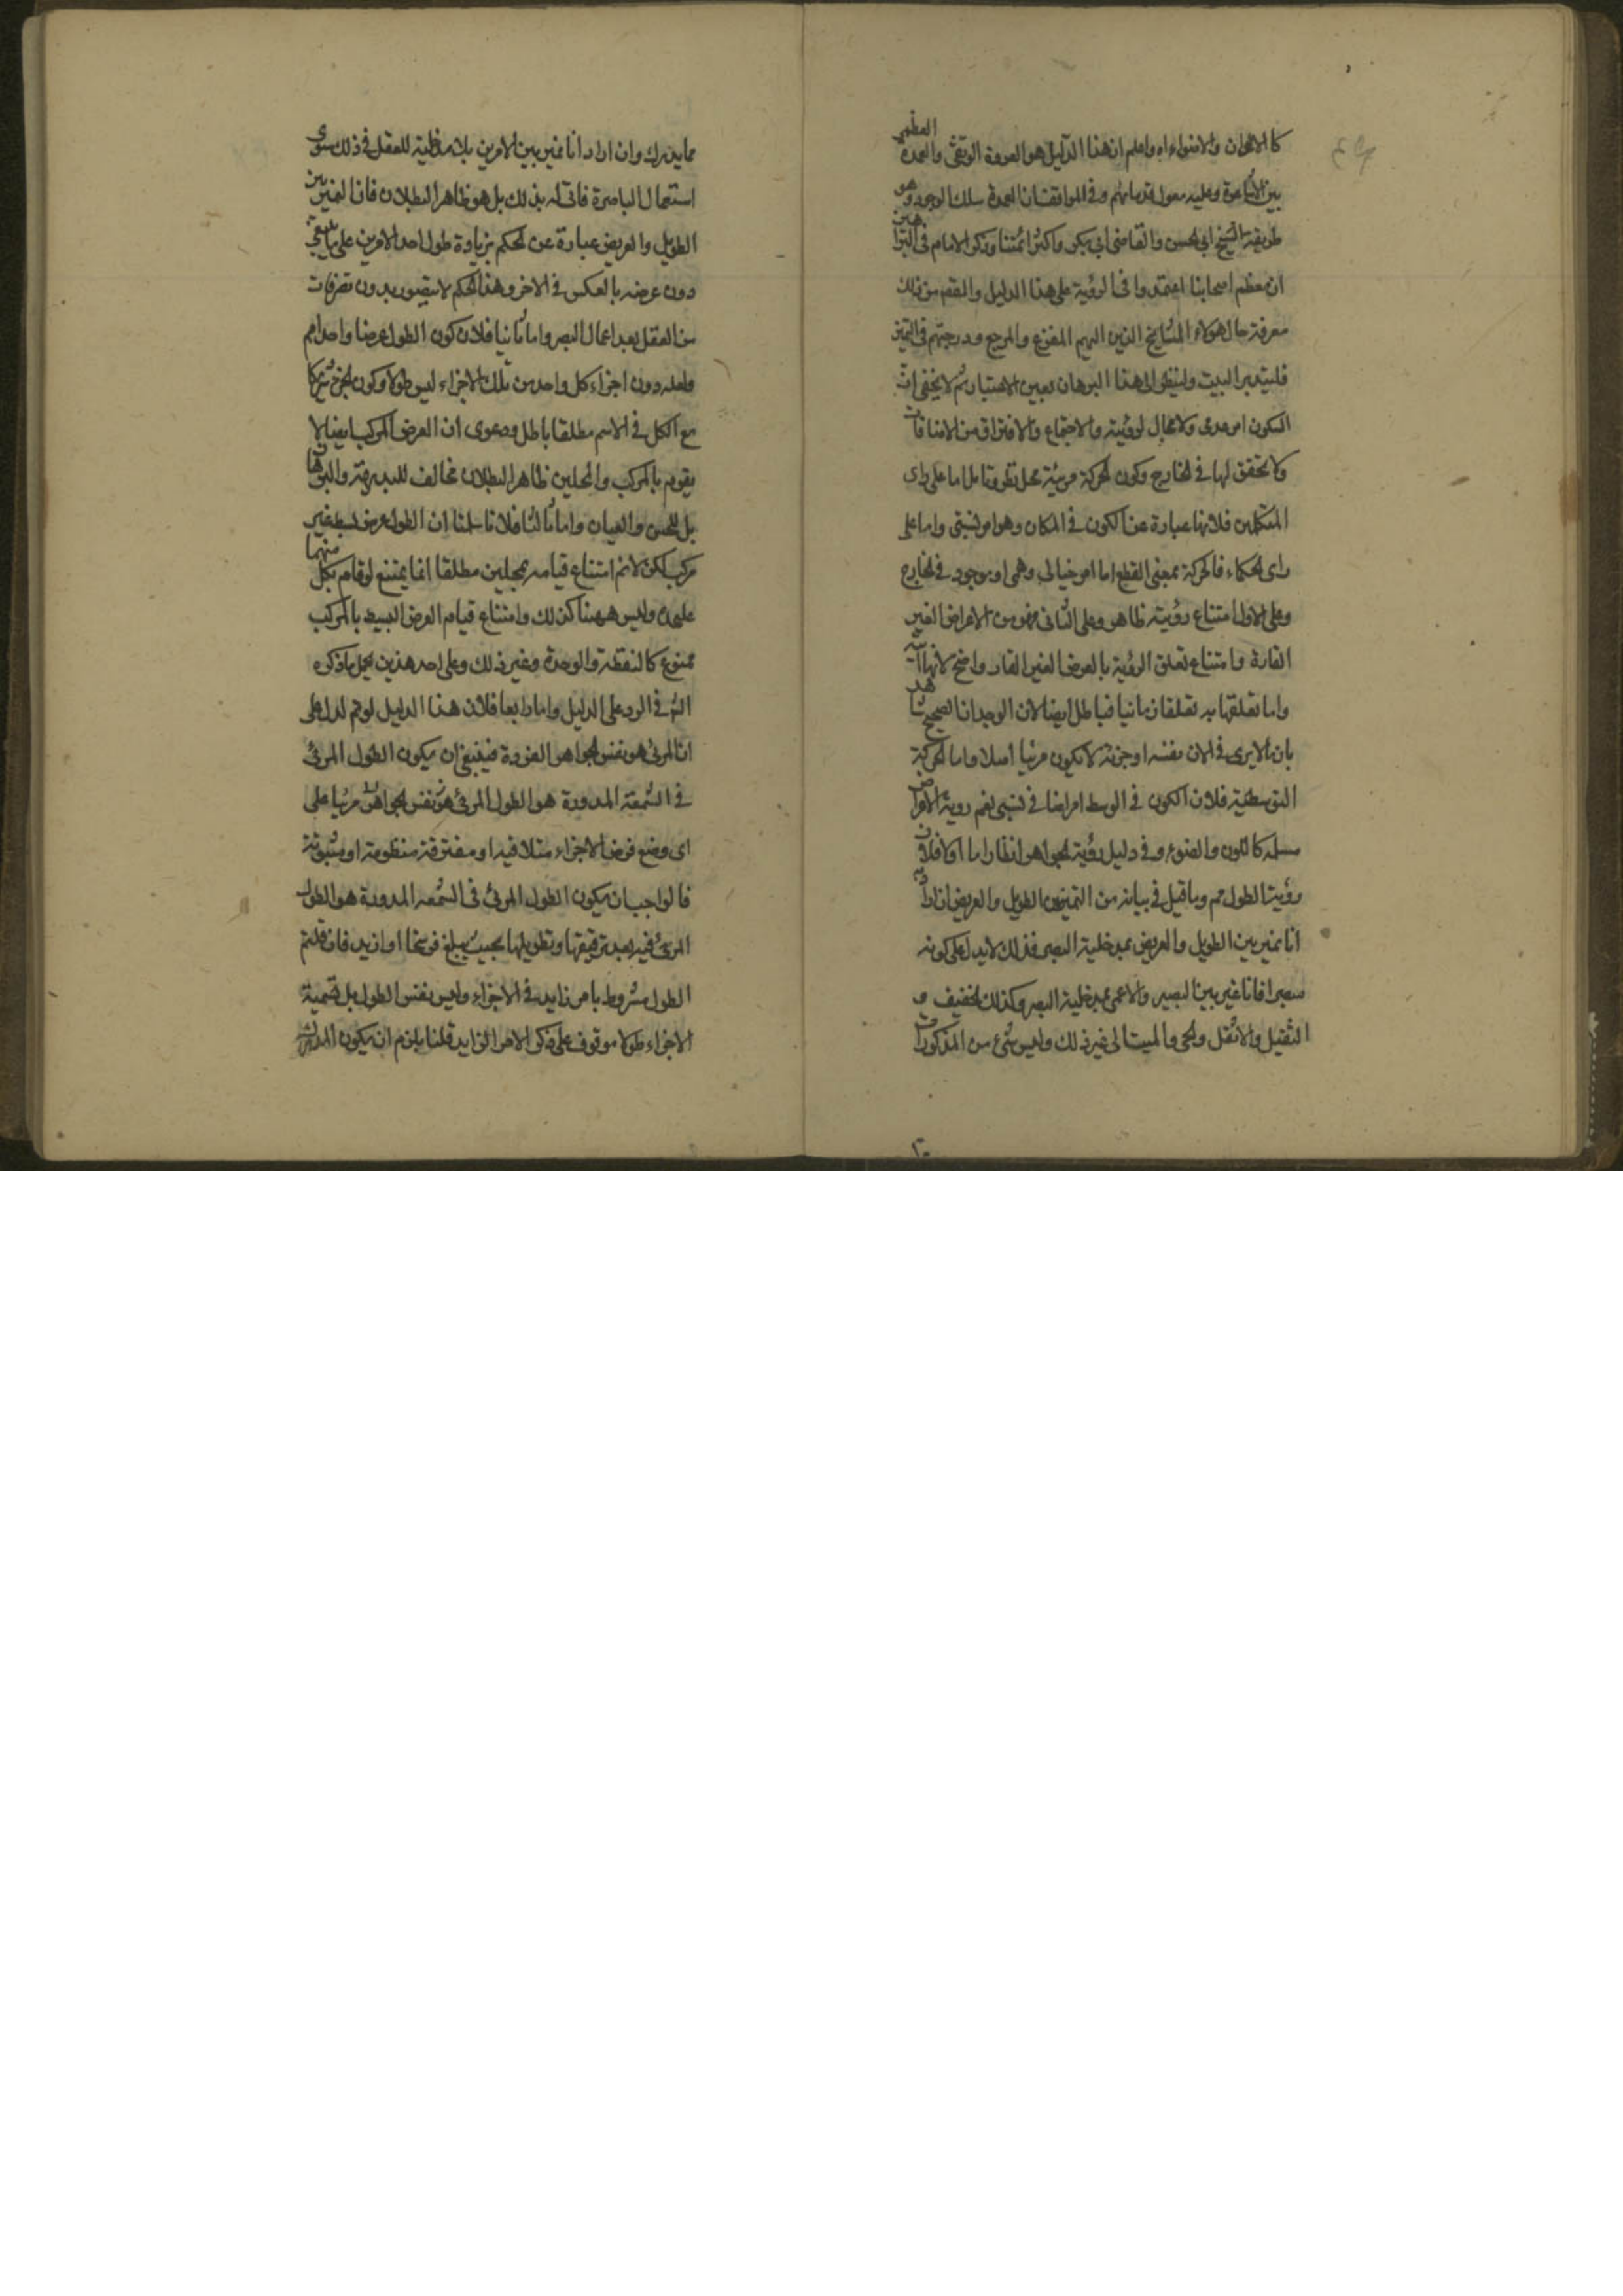 كالالوان والاضواء اه واعلم ان هذا الدليل هو العروة الوثقى والعمدة العظمى
بين الاشاعرة وعليه معول قدمائهم وفى المواقف ان العمدة سلك الوجود وهو
طريقة الشيخ ابى الحسن والقاضى ابى بكر واكثر ائمتنا وذكر الامام فى البراهين
ان معظم اصحابنا اعتمدوا فى الرؤية على هذا الدليل والمقصد من ذلك
معرفة حال هؤلاء المشايخ الذين اليهم المفزع والمرجع ودرجتهم فى التميز
فليتدبر البيت ولينظر الى هذا البرهان بعين الاعتبار ثم لا يخفى ان
السكون امر عدمى ولا مجال لرؤيته والاجتماع والافتراق من الاضافات
ولا تحقق لها فى الخارج وكون الحركة مرئية محل نظر وتامل اما على راى
المتكلمين فلانها عبارة عن الكون فى المكان وهو امر نسبى واما على
راى الحكماء فالحركة بمعنى القطع اما امر خيالى وهمى او موجود فى الخارج
وعلى الاول امتناع رؤيته ظاهر وعلى الثانى فهو من الاعراض الغير
القارة وامتناع تعلق الرؤية بالعرض الغير القار واضح لانها آنية
واما تعلقها به تعلقا زمانيا فباطل ايضا لان الوجدان الصحيح شاهد
بان ما لا يرى فى الان نفسه او جزئه لا يكون مرئيا اصلا واما الحركة
التوسطية فلان الكون فى الوسط امر اضافى نسبى نعم رؤية الاعراض
مسلمه كاللون والضوء وفى دليل رؤية الجواهر انظار اما اولا فلان
رؤية الطول مم وما قيل فى بيانه من التميز بين الطويل والعريض ان اراد به
انا نميز بين الطويل والعريض بمدخلية البصر فذلك لا يدل على كونه
مبصرا فانا نميز بين البصير والاعمى بمدخلية البصر وكذلك الخفيف و
الثقيل والاثقل والحى والميت الى غير ذلك وليس شئ من المذكورات
مما يدرك وان اراد انا نميز بين الامرين بلا مدخلية للعقل فى ذلك سوى
استعمال الباصرة فانى له بذلك بل هو ظاهر البطلان فان التميز بين
الطويل والعريض عبارة عن الحكم بزيادة طول احد الامرين على ما
دون عرضه بالعكس فى الاخر وهذا الحكم لا يتصور بدون تصرفات
من العقل بعد اعمال البصر واما ثانيا فلان كون الطول عرضا واحدا مم
ولعله دون اجزاء كل واحد من تلك الاجزاء ليس طولا وكون الجزء شريكا
مع الكل فى الاسم مطلقا باطل ودعوى ان العرض المركب ايضا لا
يقوم بالمركب والمحلين ظاهر البطلان مخالف للبديهة والبرهان
بل للحس والعيان واما ثالثا فلانا سلمنا ان الطول عرض بسيط غير
مركب لكن لا نم امتناع قيامه بمحلين مطلقا انما يمتنع لو قام بكل منهما
عليحدة وليس ههنا كذلك وامتناع قيام العرض البسيط بالمركب
ممنوع كالنقطة والوحدة وغير ذلك وعلى احد هذين يحمل ما ذكره
الش فى الرد على الدليل واما رابعا فلان هذا الدليل لو تم لدل على
ان المرئى هو نفس الجواهر الفردة فينبغى ان يكون الطول المرئى
فى الشمعة المدورة هو الطول المرئى هو نفس الجواهر مرئيا على
اى وضع فرض الاجزاء متلاقيه او مفترقة منظومة او مثبوتة
فالواجب ان يكون الطول المرئى فى الشمعه المدورة هو الطول
المرئى فيه بعد ترقيقها وتطويلها بحيث يبلغ فرسخا او ازيد فان قلتم
الطول مشروط بامر زايد فى الاجزاء وليس نفس الطول بل تسمية
الاجزاء طولا موقوف على ذكر الامر الزايد قلنا يلزم ان يكون المدرك